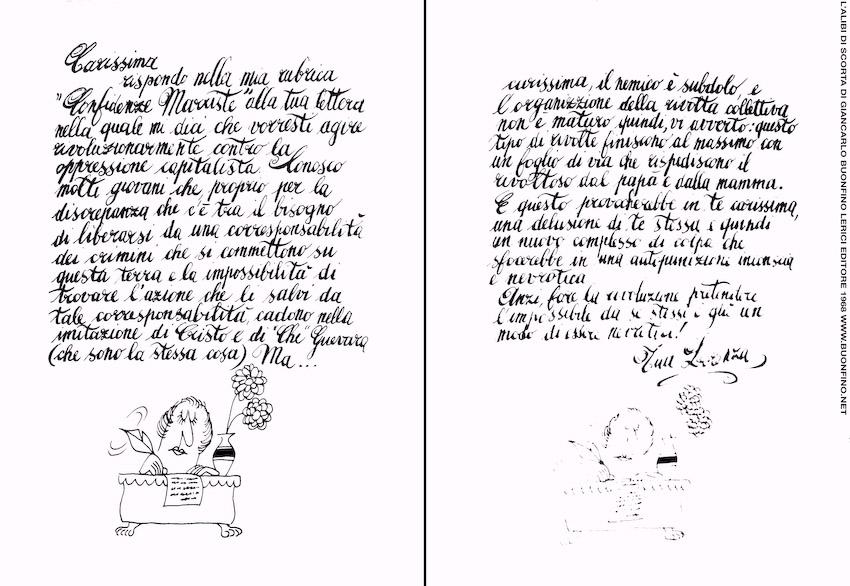 Carissima
rispondo nella mia rubrica
"Confidenze Marxiste" alla tua lettera
nella quale mi dici che vorresti agire
rivoluzionarmente contro la
oppressione capitalista. Conosco
molti giovani che proprio per la
discrepanza che c'è tra il bisogno
di liberarsi da una corresponsabilità
dei crimini che si commettono su
questa terra e la impossibilità di
trovare l'azione che li salvi da
tale corresponsabilità, cadono nella
imitazione di Cristo e di "Che" Guevara
(che sono la stessa cosa) Ma...
carissima, il nemico è subdolo, e
l'organizzione della rivolta collettiva
non è maturo quindi, vi avverto: questo
tipo di rivolte finiscono al massimo con
un foglio di via che rispediscono il
rivoltoso dal papà e dalla mamma.
E questo provocherebbe in te carissima,
una delusione di te stessa e quindi
un nuovo complesso di colpa che
sfocerebbe in una autopunizione inconscia
e nevrotica
Anzi, fare la rivoluzione pretendere
l'impossibile da se stessi è già un
modo di essere nevrotica!
Tua
L'ALIBI DI SCORTA DI GIANCARLO BUONFINO LERICI EDITORE 1968 WWW.BUONFINO.NET